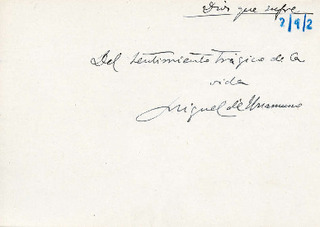 Dios que sufre
2/9/2
Del sentimiento trágico de la
vida
Miguel de Unamuno